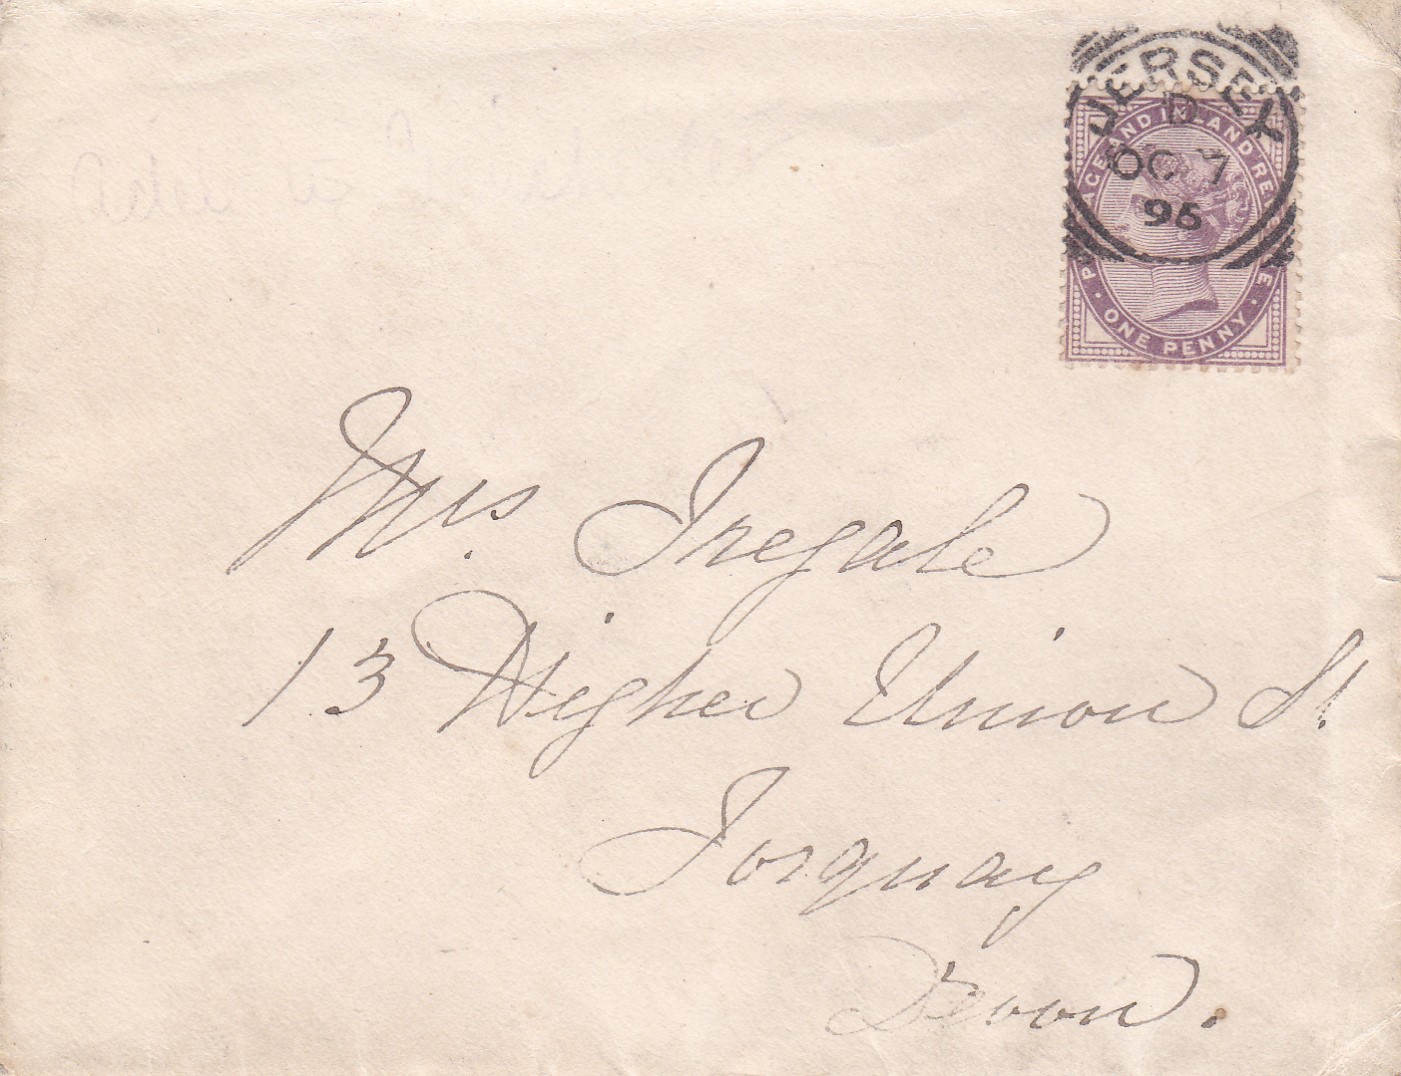 JERSEY
D
OC 7
96
POSTAGE AND INLAND REVENUE
ONE PENNY
Mrs. Tregale
13 Higher Union St
Torquay
Devon.